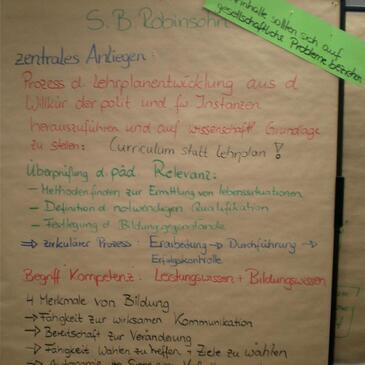 S. B. Robinsohn
inhalte sollten sich auf
gesellschaftliche Probleme beziehen
zentrales Anliegen:
Prozess d. Lehrplanentwicklung aus d
Willkür der polit und fw Instanzen
herauszuführen und auf wissenschaftl. Grundlage
zu stellen: Curriculum statt Lehrplan!
Überprüfung d. päd Relevanz:
- Methoden finden zur Ermittlung von Lebenssituationen
- Definition d. notwendigen Qualifikation
- Festlegung d. Bildungsgegenstände
⇒ zirkulärer Prozess: Erarbeitung → Durchführung →
Erfolgskontrolle
Begriff Kompetenz: Leistungswissen + Bildungswissen
4 Merkmale von Bildung
→ Fähigkeit zur wirksamen Kommunikation
→ Bereitschaft zur Veränderung
→ Fähigkeit Wahlen zu treffen + Ziele zu wählen
→ Autonomie im Sinne von